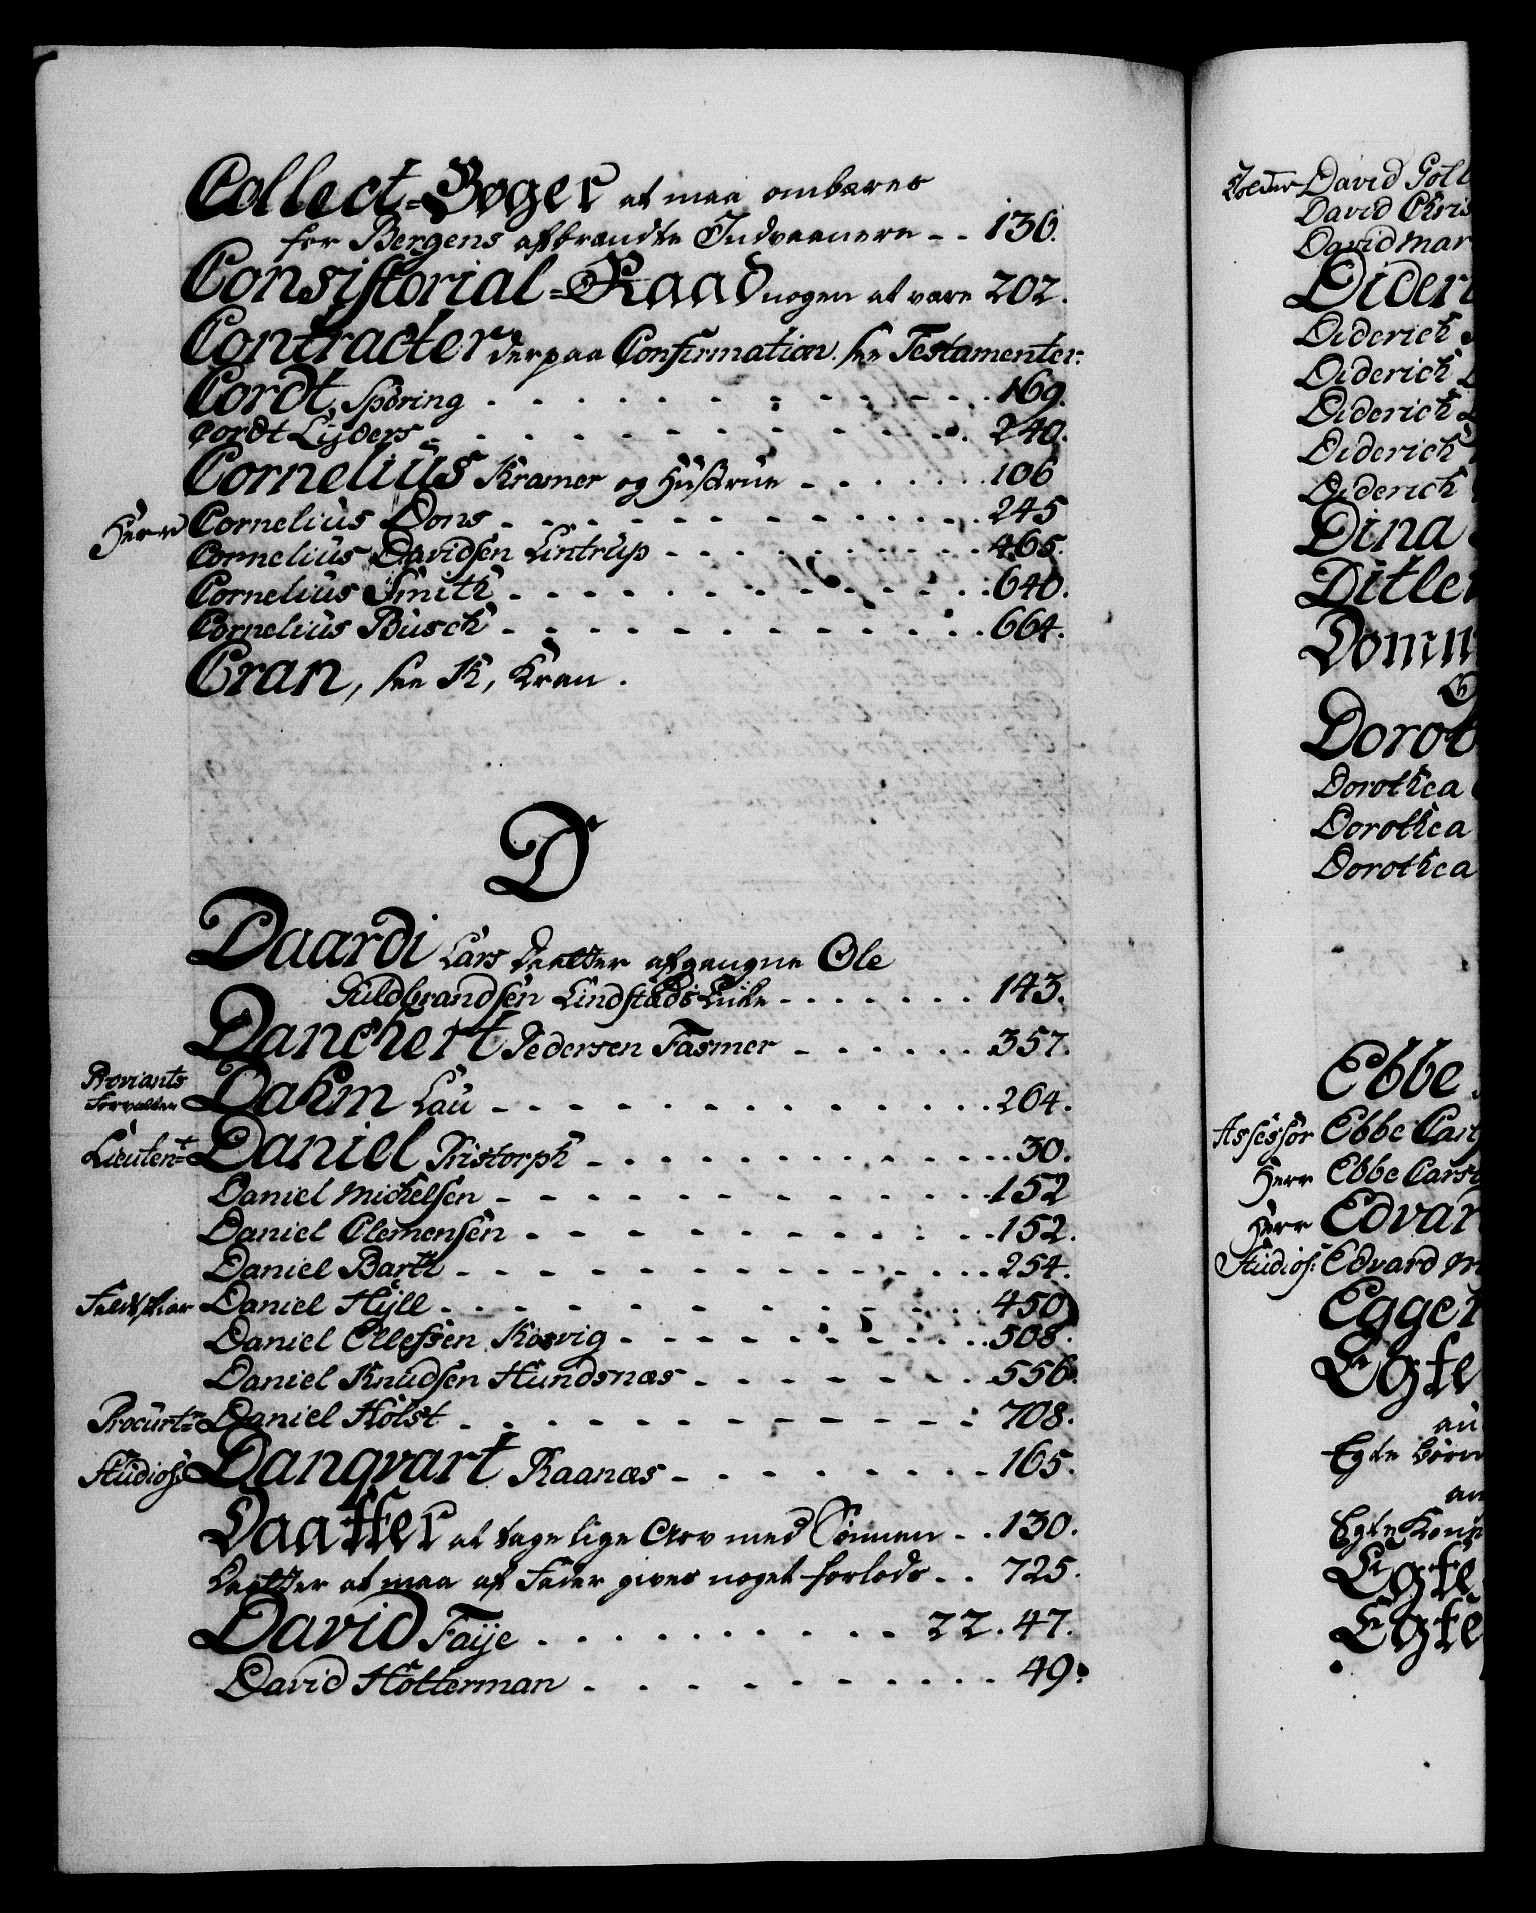 Collect-Bøger at maa ombæres
for Bergens afbrændte Indvaanere - - 136.
Consistorial-Raad nogen at være 202.
Contracter derpaa Confirmation. see Testamenter.
Cordt Spöring - - - 169.
Cordt Lÿders - - - 240.
Cornelius Kramer og Hustrue - - - 106
Herr Cornelius Dons - - - 245
Cornelius Davidsen Lintrup - - - 465.
Cornelius Smith - - - 640.
Cornelius Busch - - - 664.
Cran, see K, Kran.
D
Daardi Lars Daatter afgangne Ole
Guldbrandsen Lindstads Enke - - - 143.
Danchert Pedersen Fasmer - - - 357.
Proviants
Forvalter Dahm Lau - - - 264.
Lieuten:t Daniel Ristorph - - - 30.
Daniel Michelsen - - - 152
Daniel Clemensen - - - 152.
Daniel Barth - - - 254.
Daniel Hÿll - - - 450
Daniel Ellefsen Kosvig - - - 508.
Daniel Knudsen Hundsnæs - - - 556.
Procurt:r Daniel Holst - - - 708.
Studios: Danqvart Raanæs - - - 165.
Daatter at tage lige Arv med Sønnen - - 130.
Daatter at maa af Fader gives noget forlods - - 725.
David Faÿe - - - 22. 47.
David Hötterman - - - 49.
David Göll
David Chris
David Mar
Dideri
Diderich
Diderich
Diderich
Diderich
Diderich
Dina
Ditle
Domm
Dorot
Dorothea
Dorothea
Dorothea
Ebbe
Assessor Ebbe Car
Herr Ebbe Cars
Herr Edvar
Studios: Edvard M
Egger
Egte
an
Egte børn
an
Egte
Egte
Egte